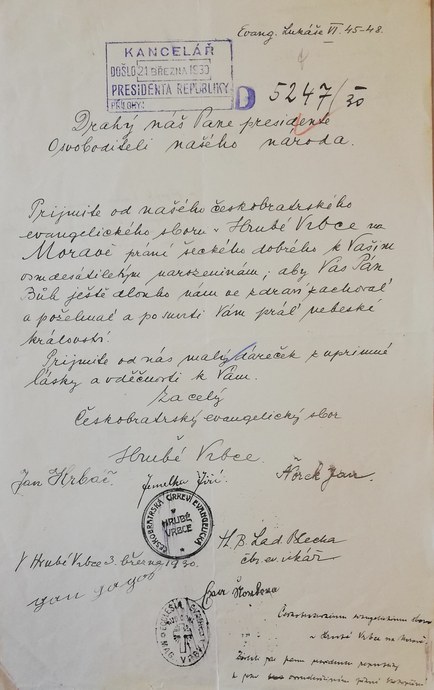 Evang. Lukáše VI. 45-48.
KANCELÁŘ
DOŠLO 21 BŘEZNA 1930
PRESIDENTA REPUBLIKY
PŘÍLOHY:
D 5247/30
Drahý náš Pane presidente
Osvoboditeli našeho národa.
Prijmite od našeho českobratrského
evangelického sboru v Hrubé Vrbce na
Moravě prání šeckého dobrého k Vašim
osmdesátiletým narozeninám; aby Vas Pán
Bůh ještě dlouho nám ve zdraví zachoval
a požehnal a po smrti Vám prál nebeské
království.
Prijmite od nás malý dáreček z uprimné
lásky a vděčnosti k Vám.
Za celý
Českobratrský evangelický sbor
Hrubé Vrbce.
Jan Hrbáč. Jemelka Jiří. Jan
ČESKOBRATRSKÁ CÍRKEV EVANGELICKÁ
HRUBÉ
VRBCE
H. B. Lad Blecha
čbr. ev. vikář.
V Hrubé Vrbce 3. března 1930.
Jan
Českobratrskému evangelickému sboru
v Hrubé Vrbce na Moravě